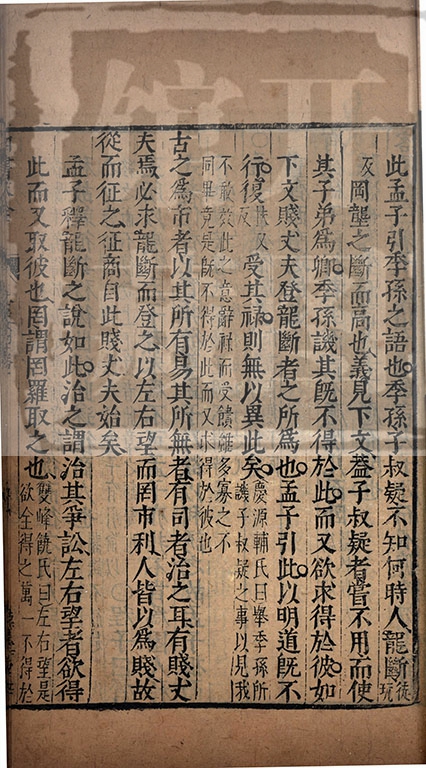 此孟子引季孫之語也季孫子叔疑不知何時人龍斷
徒玩
反岡壟之斷而高也義見下文葢子叔疑者嘗不用而使
其子弟為卿季孫譏其旣不得於此而又欲求得於彼如
下文賤丈夫登龍斷者之所為也孟子引此以明道旣不
行復扶又反受其祿則無以異此矣慶源輔氏曰舉季孫所
譏子叔疑之事以見我
不敢效此之意辭祿而受饋雖多寡之不
同畢竟是旣不得於此而又求得於彼也
古之為市者以其所有易其所無者有司者治之耳有賤丈
夫焉必求龍斷而登之以左右望而罔市利人皆以為賤故
從而征之征商自此賤丈夫始矣
孟子釋龍斷之說如此治之謂治其爭訟左右望者欲得
此而又取彼也罔謂罔羅取之也雙峰饒氏曰左右望是
欲全得之萬一不得於